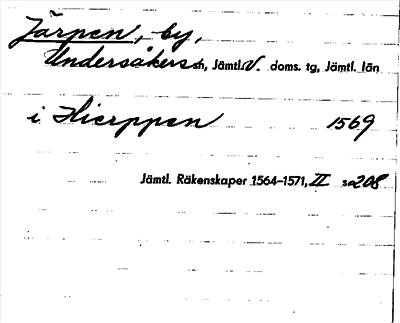 Järpen, by,
Undersåkers sn, Jämtl. V. doms. tg, Jämtl. län
i Hierppen 1569
Jämtl. Räkenskaper 1564–1571, II s. 208